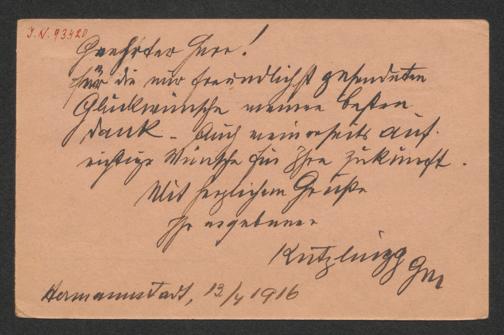 J.N. 93420
Geehrter Herr!
Für die mir freundlichst gesendeten
Glückwünsche meinen besten
Dank – Auch meinerseits auf-
richtige Wünsche für Ihre Zukunft.
Mit herzlichem Gruße
Ihr ergebener
Hermannstadt, 13/4 1916